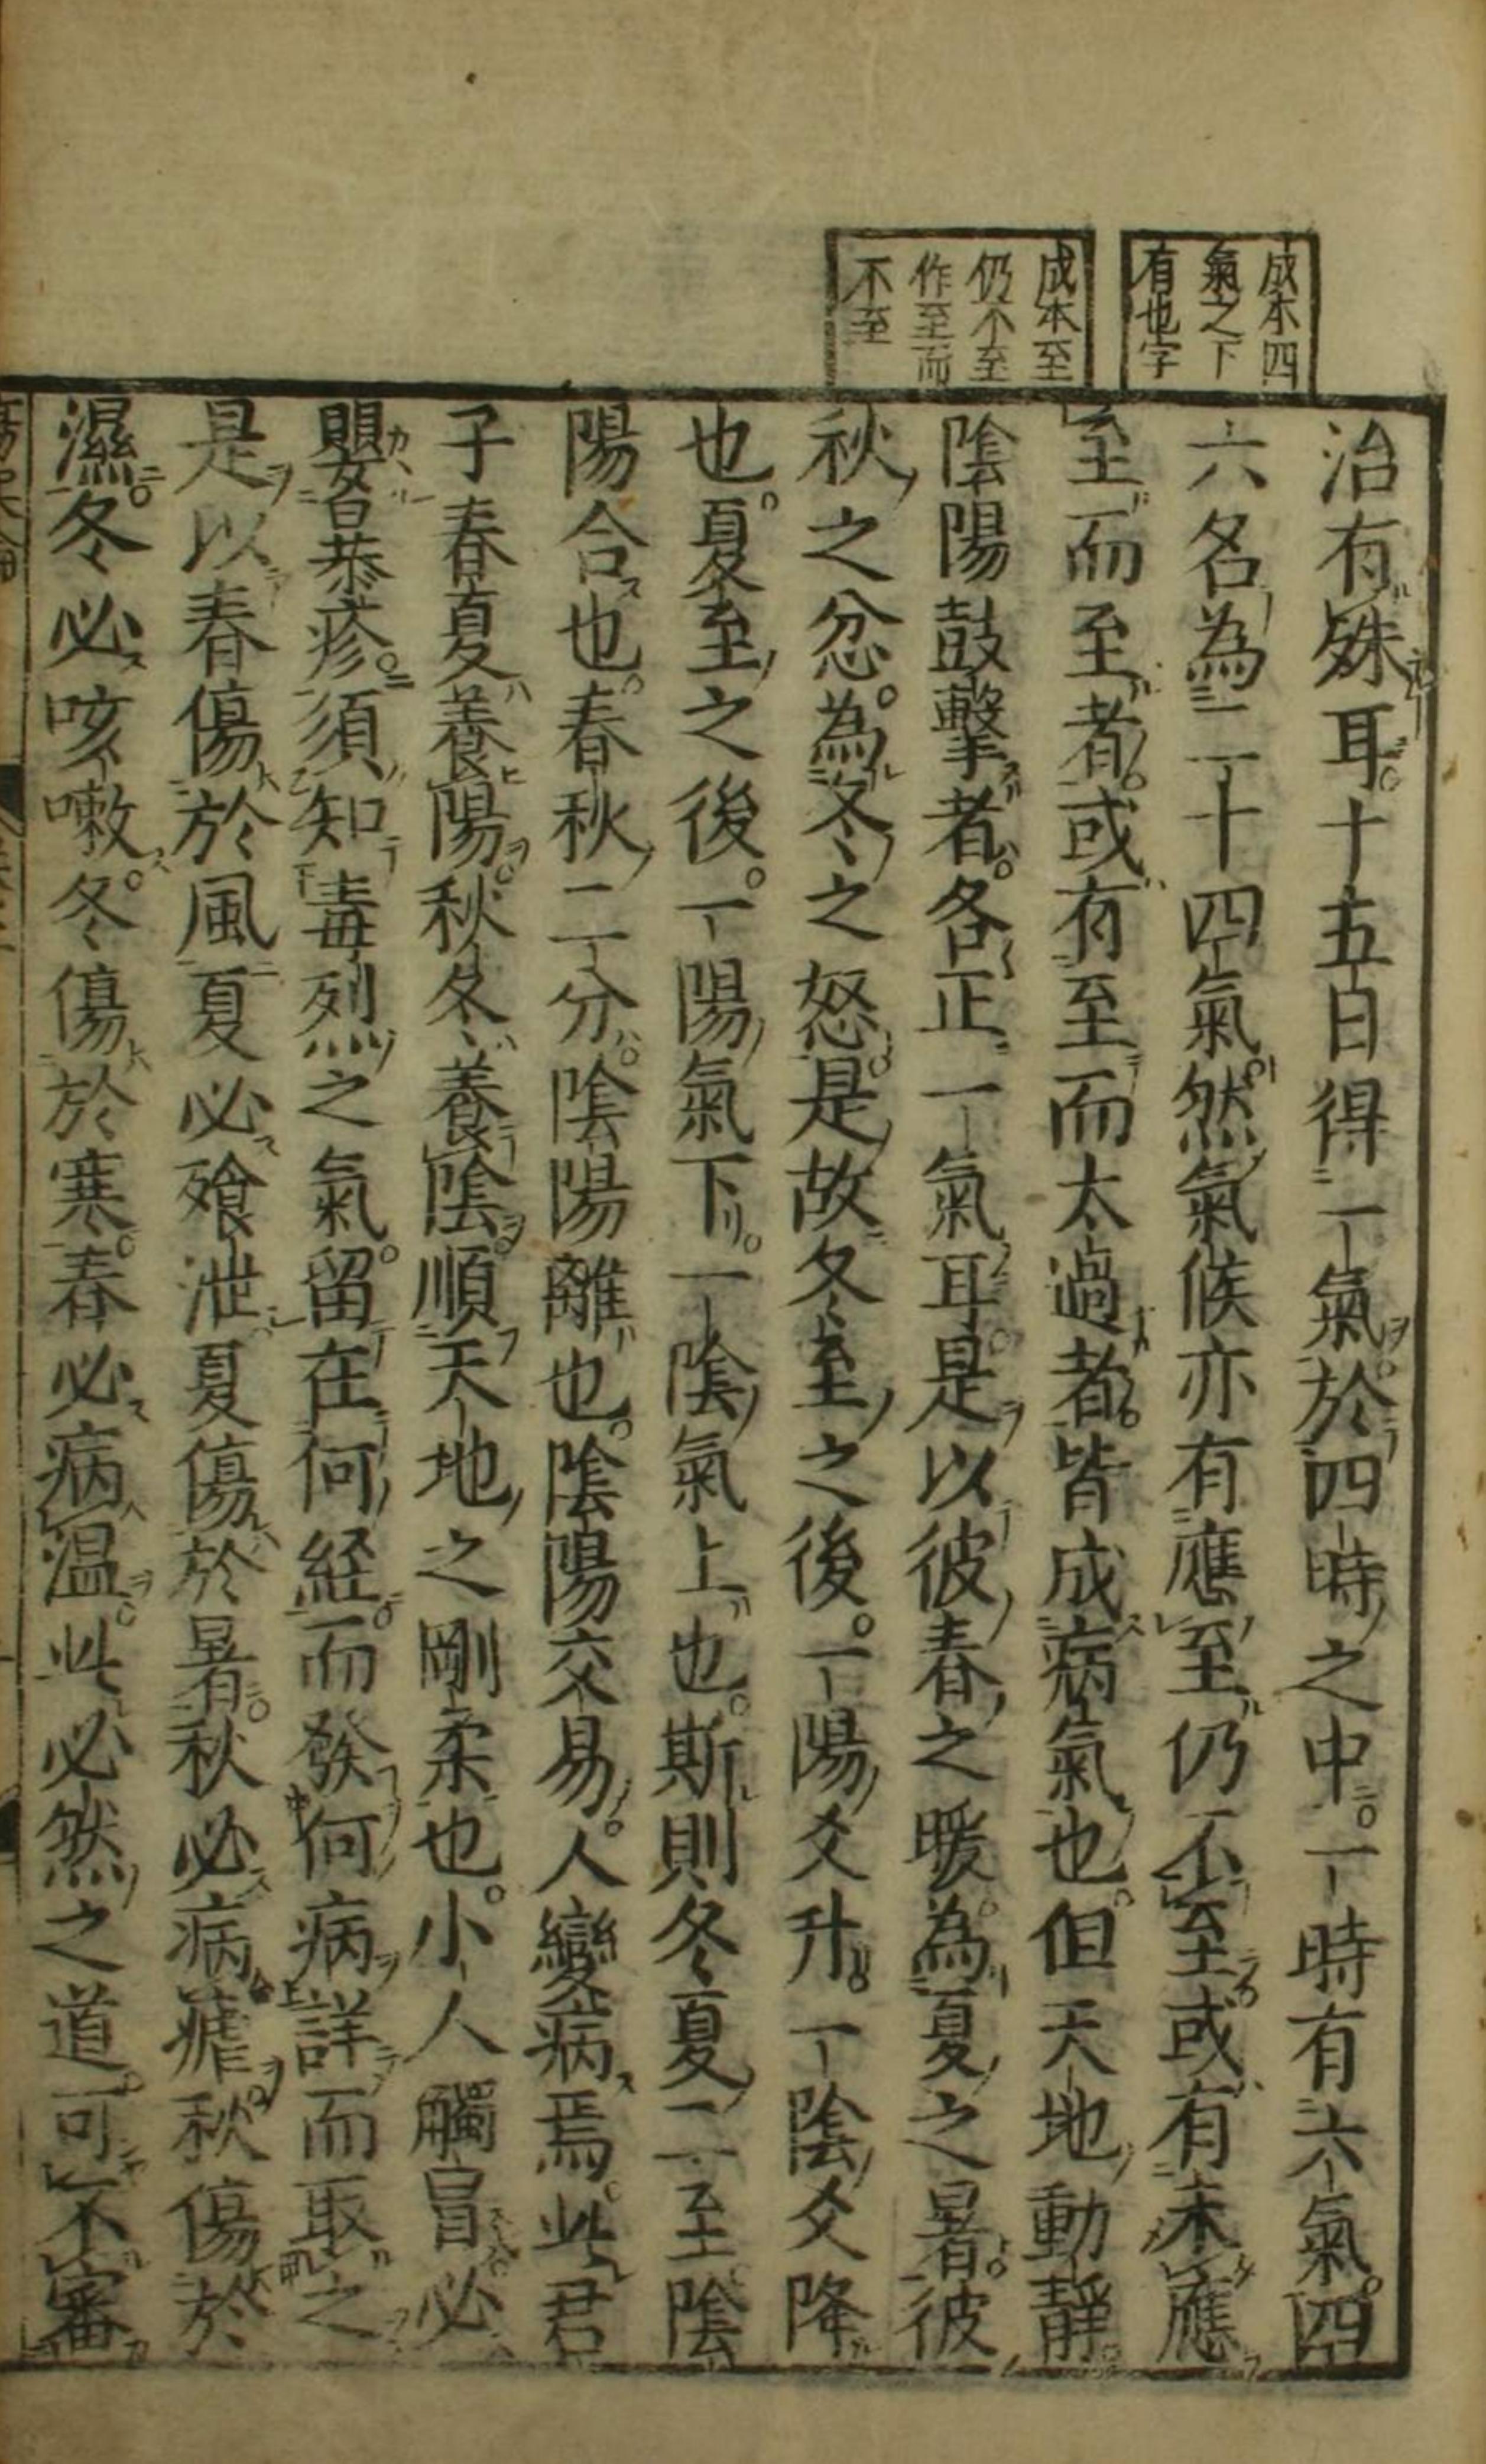 成本四
氣之下
有也字
成本至
仍不至
作至而
不至
治有殊耳十五日得一氣於四時之中一時有六氣四
六名為二十四氣然氣候亦有應至仍不至或有未應
至而至者或有至而太過者皆成病氣也但天地動靜
陰陽鼓擊者各正一氣耳是以彼春之暖為夏之暑彼
秋之忿為冬之怒是故冬至之後一陽爻升一陰爻降
也夏至之後一陽氣下一陰氣上也斯則冬夏二至陰
陽合也春秋二分陰陽離也陰陽交易人變病焉此君
子春夏養陽秋冬養陰順天地之剛柔也小人觸冒必
嬰暴疹須知毒烈之氣留在何経而發何病詳而取之
是以春傷於風夏必飱泄夏傷於暑秋必病瘧秋傷於
濕冬必咳嗽冬傷於寒春必病温此必然之道可不審